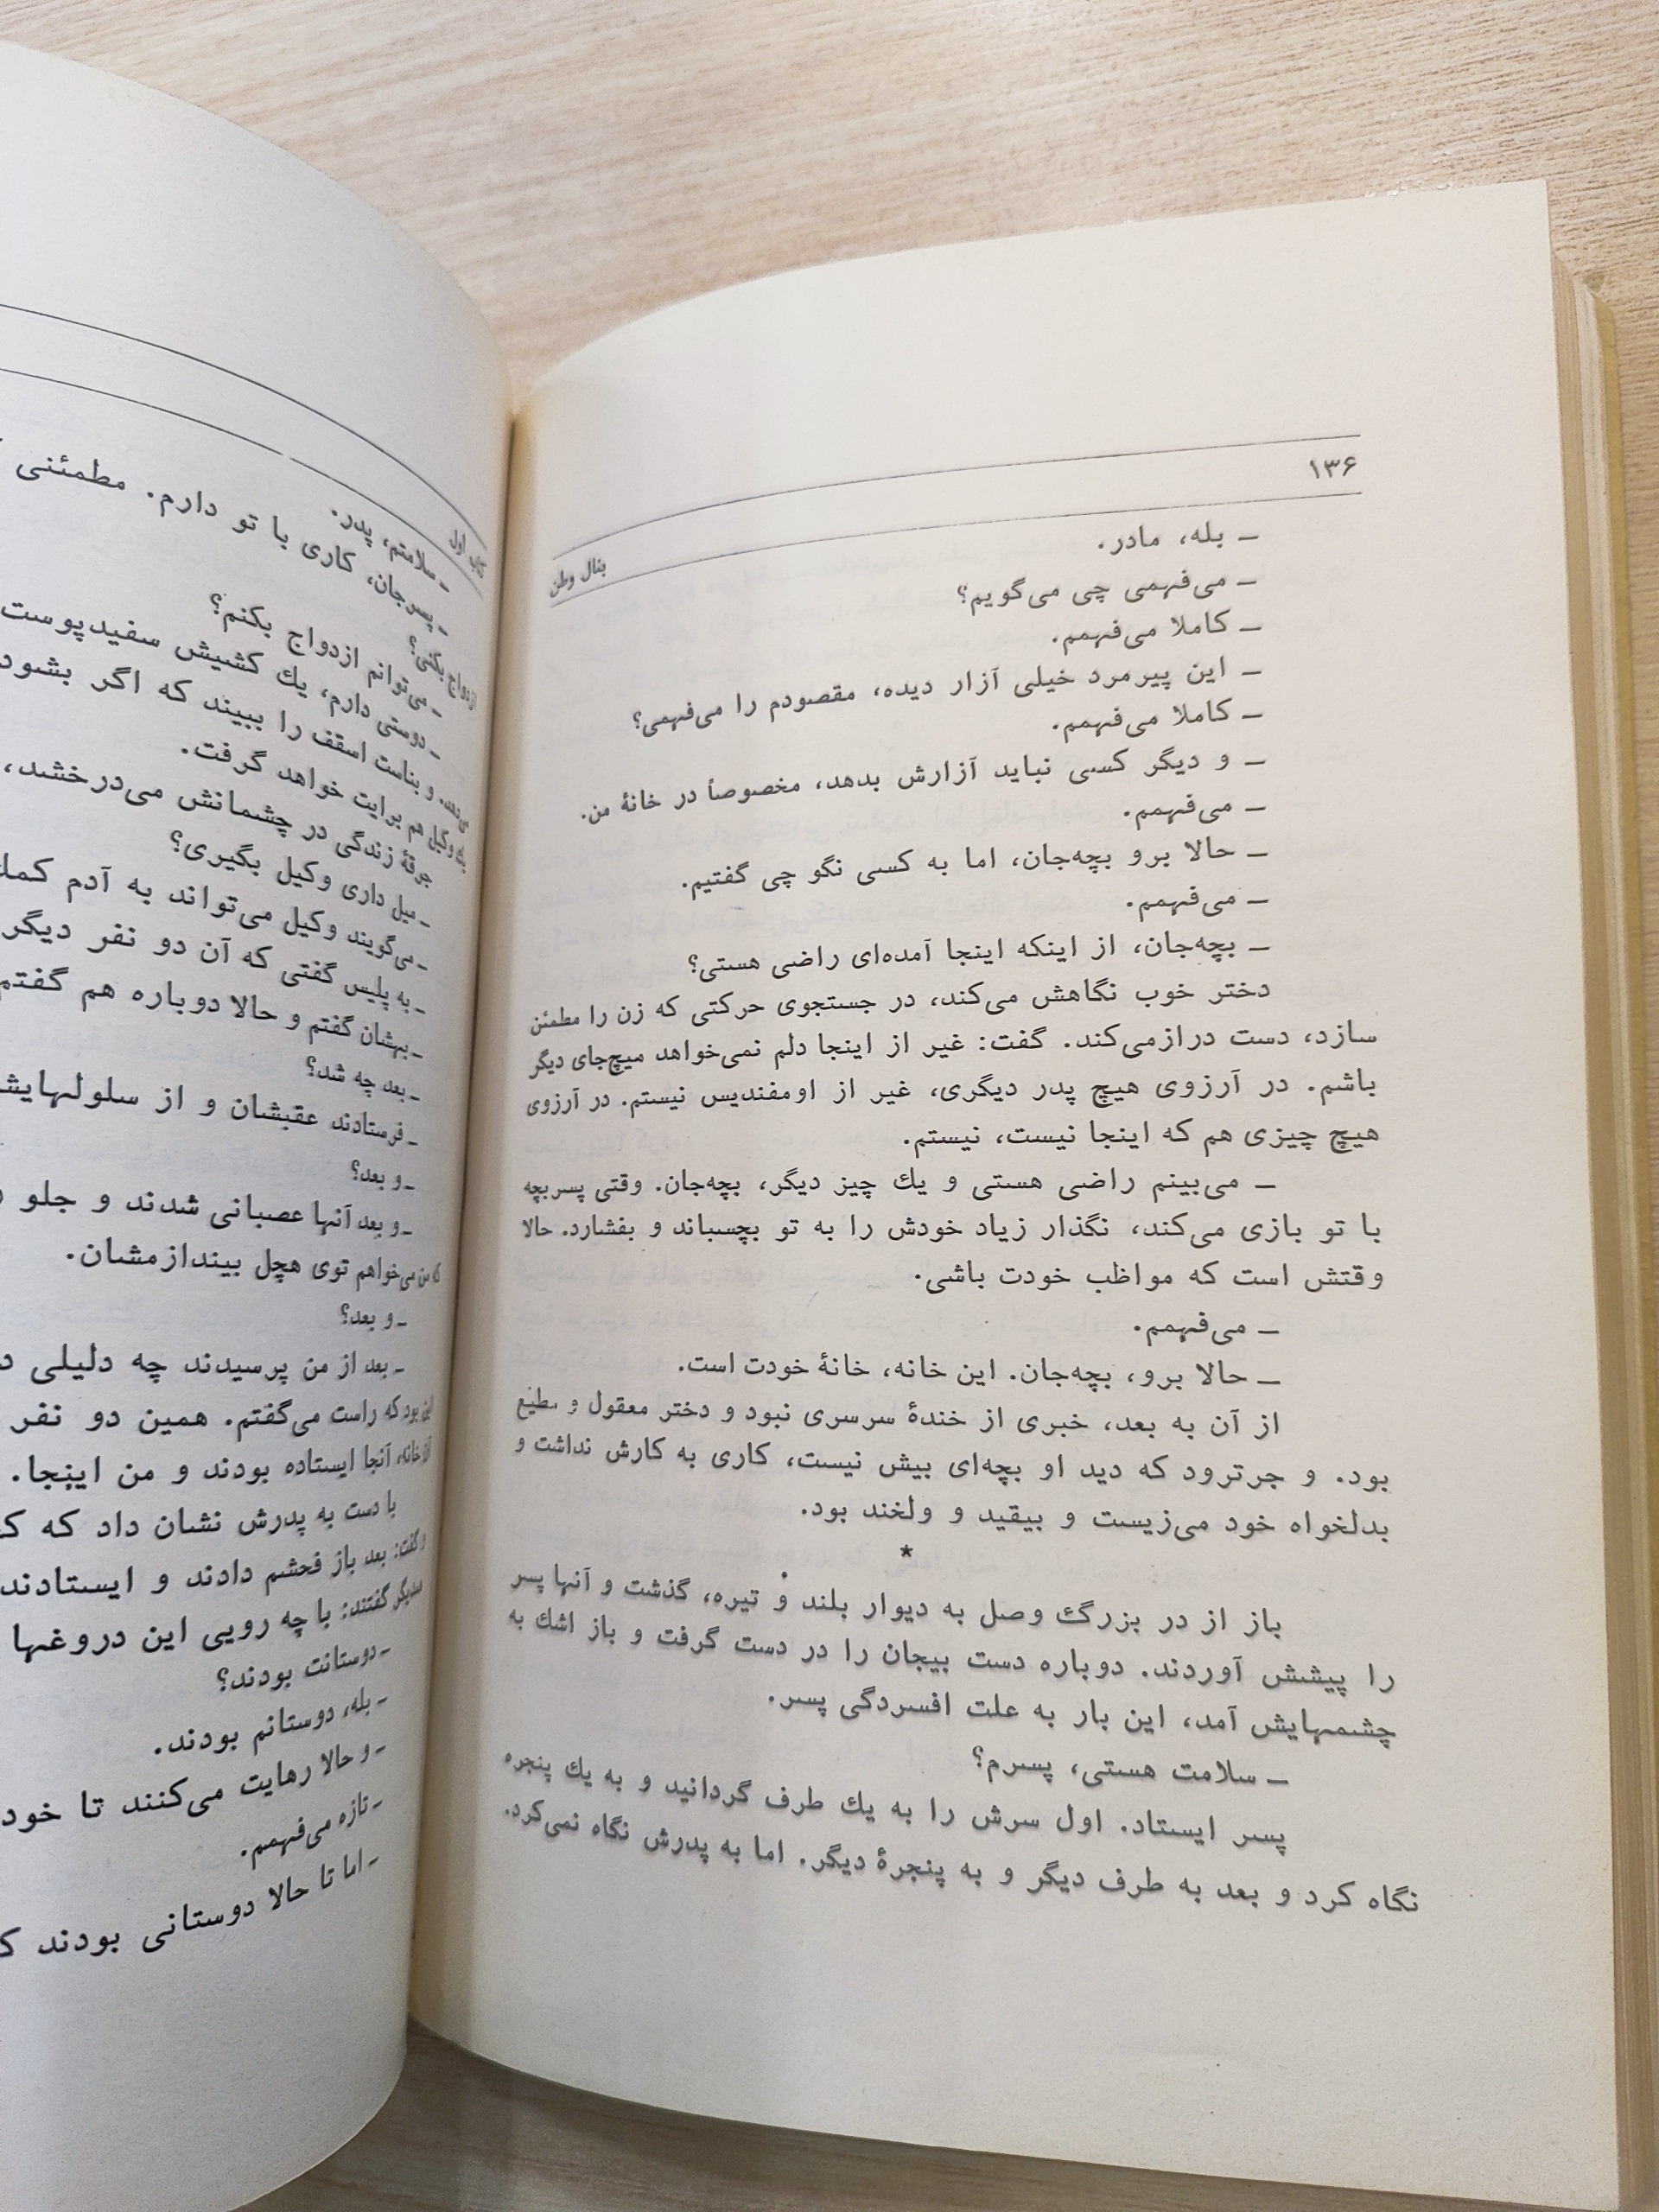 ۱۳۶
بنال وطن
ـ بله، مادر.
ـ می‌فهمی چی می‌گویم؟
ـ کاملا می‌فهمم.
ـ این پیرمرد خیلی آزار دیده، مقصودم را می‌فهمی؟
ـ کاملا می‌فهمم.
ـ و دیگر کسی نباید آزارش بدهد، مخصوصاً در خانهٔ من.
ـ می‌فهمم.
ـ حالا برو بچه‌جان، اما به کسی نگو چی گفتیم.
ـ می‌فهمم.
ـ بچه‌جان، از اینکه اینجا آمده‌ای راضی هستی؟
دختر خوب نگاهش می‌کند، در جستجوی حرکتی که زن را مطمئن
سازد، دست درازمی‌کند. گفت: غیر از اینجا دلم نمی‌خواهد هیچ‌جای دیگر
باشم. در آرزوی هیچ پدر دیگری، غیر از اومفندیس نیستم. در آرزوی
هیچ چیزی هم که اینجا نیست، نیستم.
ـ می‌بینم راضی هستی و یك چیز دیگر، بچه‌جان. وقتی پسربچه
با تو بازی می‌کند، نگذار زیاد خودش را به تو بچسباند و بفشارد. حالا
وقتش است که مواظب خودت باشی.
ـ می‌فهمم.
ـ حالا برو، بچه‌جان. این خانه، خانهٔ خودت است.
از آن به بعد، خبری از خندهٔ سرسری نبود و دختر معقول و مطیع
بود. و جرترود که دید او بچه‌ای بیش نیست، کاری به کارش نداشت و
بدلخواه خود می‌زیست و بیقید و ولخند بود.
*
باز از در بزرگ وصل به دیوار بلند و تیره، گذشت و آنها پسر
را پیشش آوردند. دوباره دست بیجان را در دست گرفت و باز اشك به
چشمهایش آمد، این بار به علت افسردگی پسر.
ـ سلامت هستی، پسرم؟
پسر ایستاد. اول سرش را به یك طرف گردانید و به یك پنجره
نگاه کرد و بعد به طرف دیگر و به پنجرهٔ دیگر. اما به پدرش نگاه نمی‌کرد.
کتاب اول
ـ سلامتم، پدر.
ـ پسرجان، کاری با تو دارم. مطمئنی
ازدواج بکنی؟
ـ می‌توانم ازدواج بکنم؟
ـ دوستی دارم، یك کشیش سفیدپوست
و بناست اسقف را ببیند که اگر بشود
یك وکیل هم برایت خواهد گرفت.
جرقهٔ زندگی در چشمانش می‌درخشد،
ـ میل داری وکیل بگیری؟
ـ می‌گویند وکیل می‌تواند به آدم کمك
ـ به پلیس گفتی که آن دو نفر دیگر
ـ بهشان گفتم و حالا دوباره هم گفتم
ـ بعد چه شد؟
ـ فرستادند عقبشان و از سلولهایشا
ـ و بعد؟
ـ و بعد آنها عصبانی شدند و جلو
که من می‌خواهم توی هچل بیندازمشان.
ـ و بعد؟
ـ بعد از من پرسیدند چه دلیلی
این بود که راست می‌گفتم. همین دو نفر
آن خانه، آنجا ایستاده بودند و من اینجا.
با دست به پدرش نشان داد که
و گفت: بعد باز فحشم دادند و ایستادند
همدیگر گفتند: با چه رویی این دروغها
ـ دوستانت بودند؟
ـ بله، دوستانم بودند.
ـ و حالا رهایت می‌کنند تا خود
ـ تازه می‌فهمم.
ـ اما تا حالا دوستانی بودند